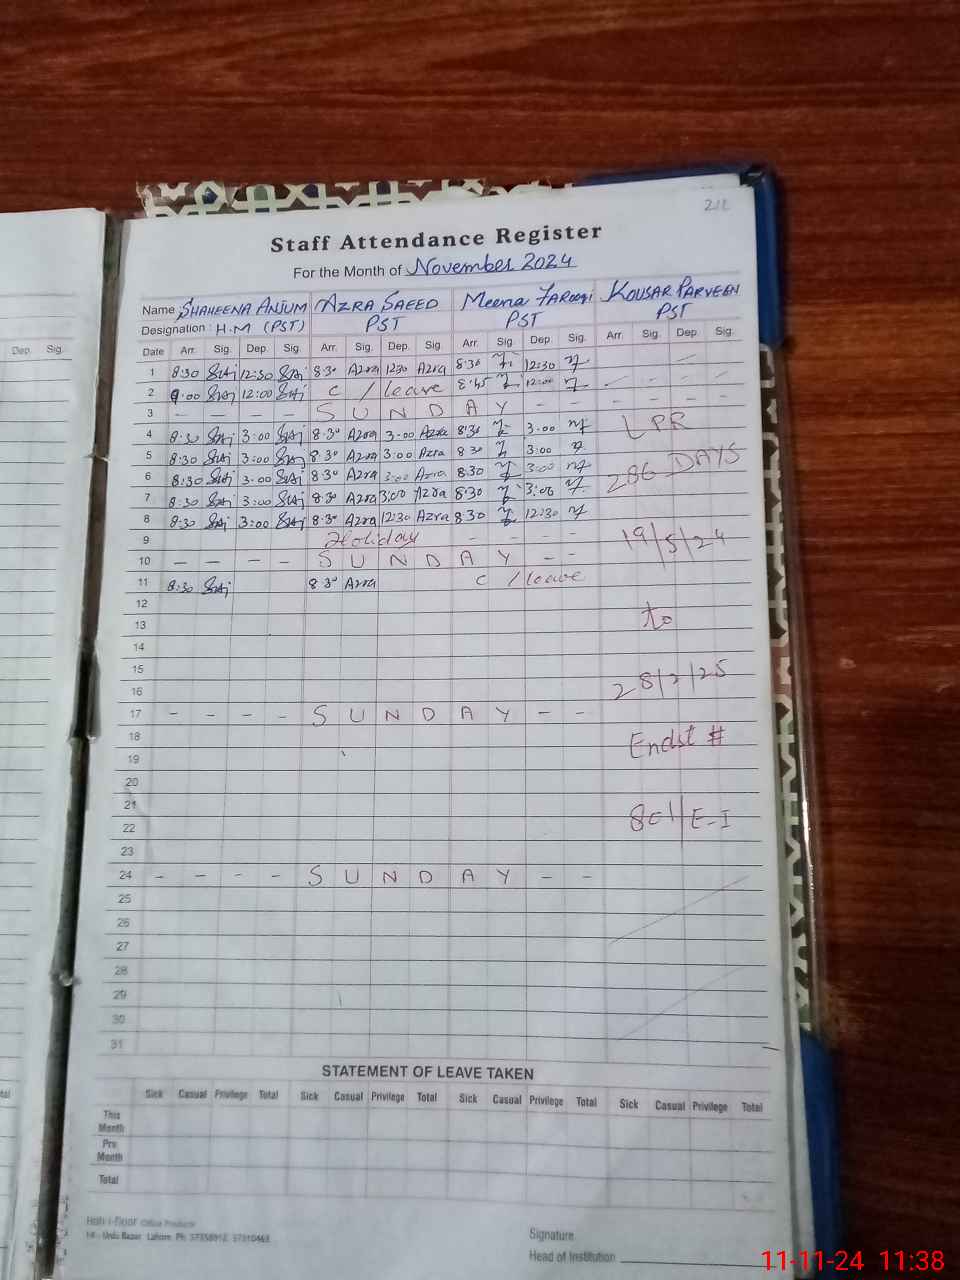 212
Staff Attendance Register
For the Month of November 2024
Name SHAHEENA ANJUM AZRA SAEED Meena FAROOQI KOUSAR PARVEEN
Designation : H.M (PST) PST PST PST
Dep. Sig. Date Arr. Sig. Dep. Sig. Arr. Sig. Dep. Sig. Arr. Sig. Dep. Sig. Arr. Sig. Dep. Sig.
1 8:30 12:30 8:30 Azra 12:30 Azra 8:30 12:30
2 9:00 12:00 C / leave 8:45 12:00
3 - - - - S U N D A Y - - - - - -
4 8:30 3:00 8:30 Azra 3:00 Azra 8:30 3:00 LPR
5 8:30 3:00 8:30 Azra 3:00 Azra 8:30 3:00
6 8:30 3:00 8:30 Azra 3:00 Azra 8:30 3:00 286 DAYS
7 8:30 3:00 8:30 Azra 3:00 Azra 8:30 3:00
8 8:30 3:00 8:30 Azra 12:30 Azra 8:30 12:30
9 Holiday - - - - 19/5/24
10 - - - - S U N D A Y - -
11 8:30 8:30 Azra C / leave
12
13 to
14
15
16 28/2/25
17 - - - - S U N D A Y - -
18 Endst #
19
20
21
22 801/E-I
23
24 - - - - S U N D A Y - -
25
26
27
28
29
30
31
STATEMENT OF LEAVE TAKEN
Sick Casual Privilege Total Sick Casual Privilege Total Sick Casual Privilege Total Sick Casual Privilege Total
This Month
Pre Month
Total
Office Products
14 - Urdu Bazar Lahore. Ph:
Signature
Head of Institution
11-11-24 11:38